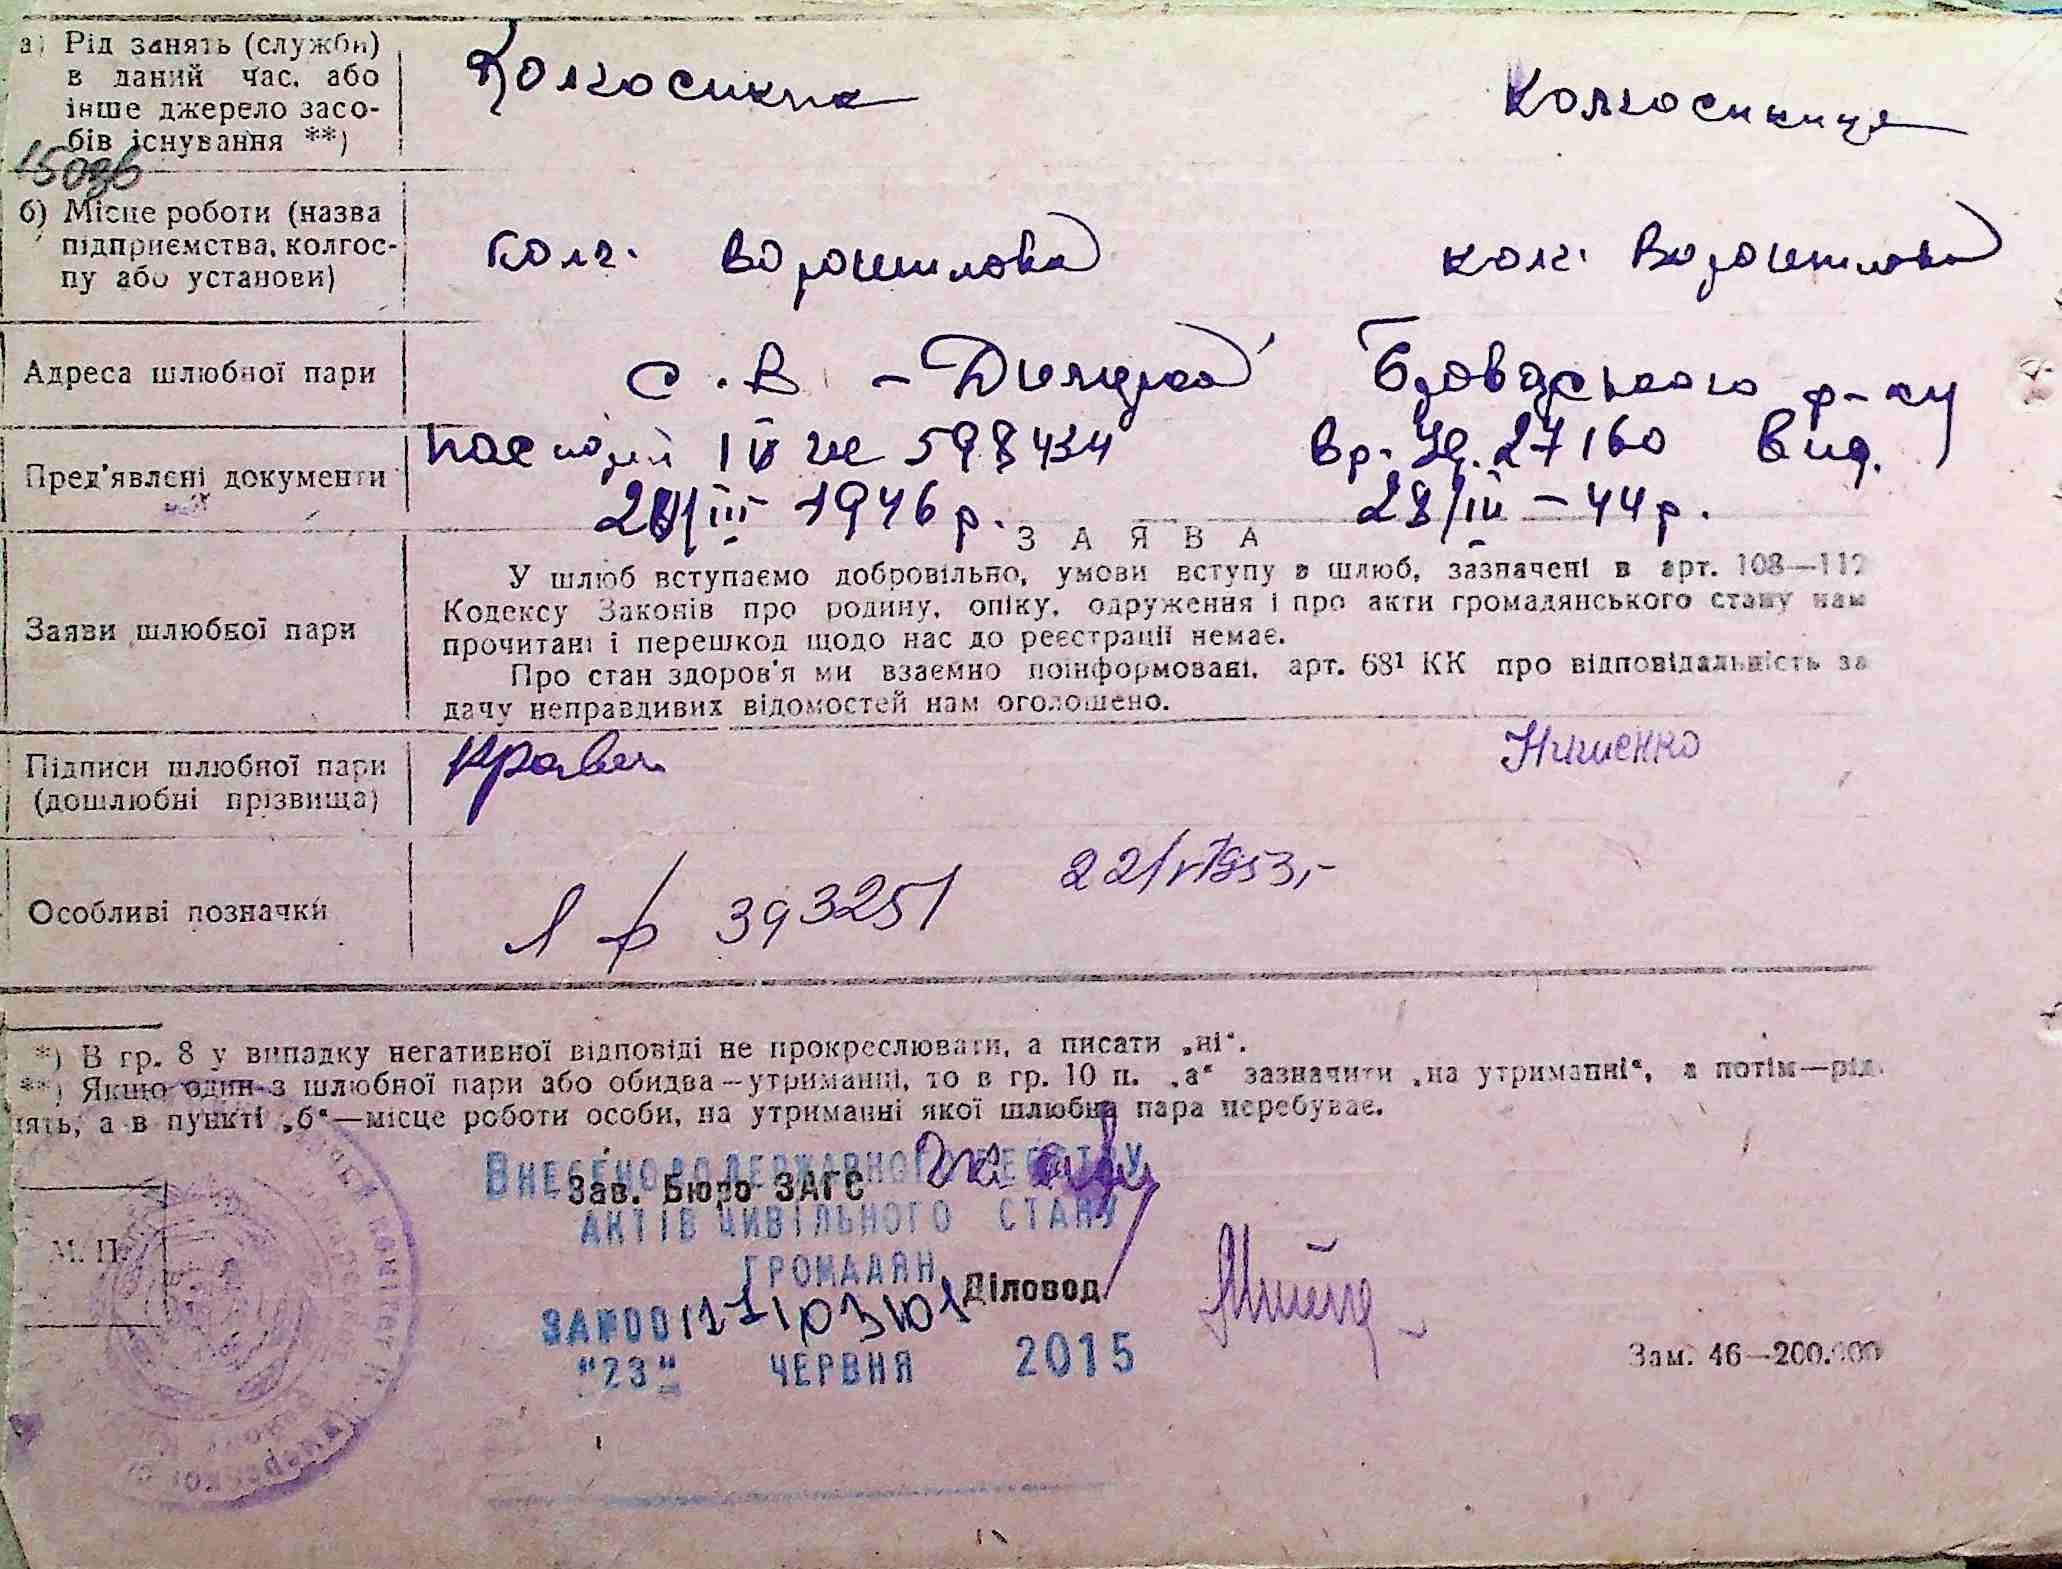 а) Рід занять (служби)
в даний час, або
інше джерело засо-
бів існування **)
Колгоспник
Колгоспниця
б) Місце роботи (назва
підприємства, колгос-
пу або установи)
колг. Ворошилова
колг. Ворошилова
Адреса шлюбної пари
с. В-Димерка Броварського р-ну
Пред'явлені документи
паспорт IV 598434
28/III-1946 р.
27160 вид.
28/III-44 р.
Заяви шлюбної пари
ЗАЯВА
У шлюб вступаємо добровільно, умови вступу в шлюб, зазначені в арт. 108—112
Кодексу Законів про родину, опіку, одруження і про акти громадянського стану нам
прочитані і перешкод щодо нас до реєстрації немає.
Про стан здоров'я ми взаємно поінформовані, арт. 68¹ КК про відповідальність за
дачу неправдивих відомостей нам оголошено.
Підписи шлюбної пари
(дошлюбні прізвища)
Кравец
Ничиенко
Особливі позначки
393251
*) В гр. 8 у випадку негативної відповіді не прокреслювати, а писати „ні“.
**) Якщо один з шлюбної пари або обидва—утриманці, то в гр. 10 п. „а“ зазначити „на утриманні“, а потім—рід
нять, а в пункті „б“—місце роботи особи, на утриманні якої шлюбна пара перебуває.
Внесено до Державного реєстру
Зав. Бюро ЗАГС
актів цивільного стану
громадян
М. П.
Діловод
"23" ЧЕРВНЯ 2015
Зам. 46—200.000